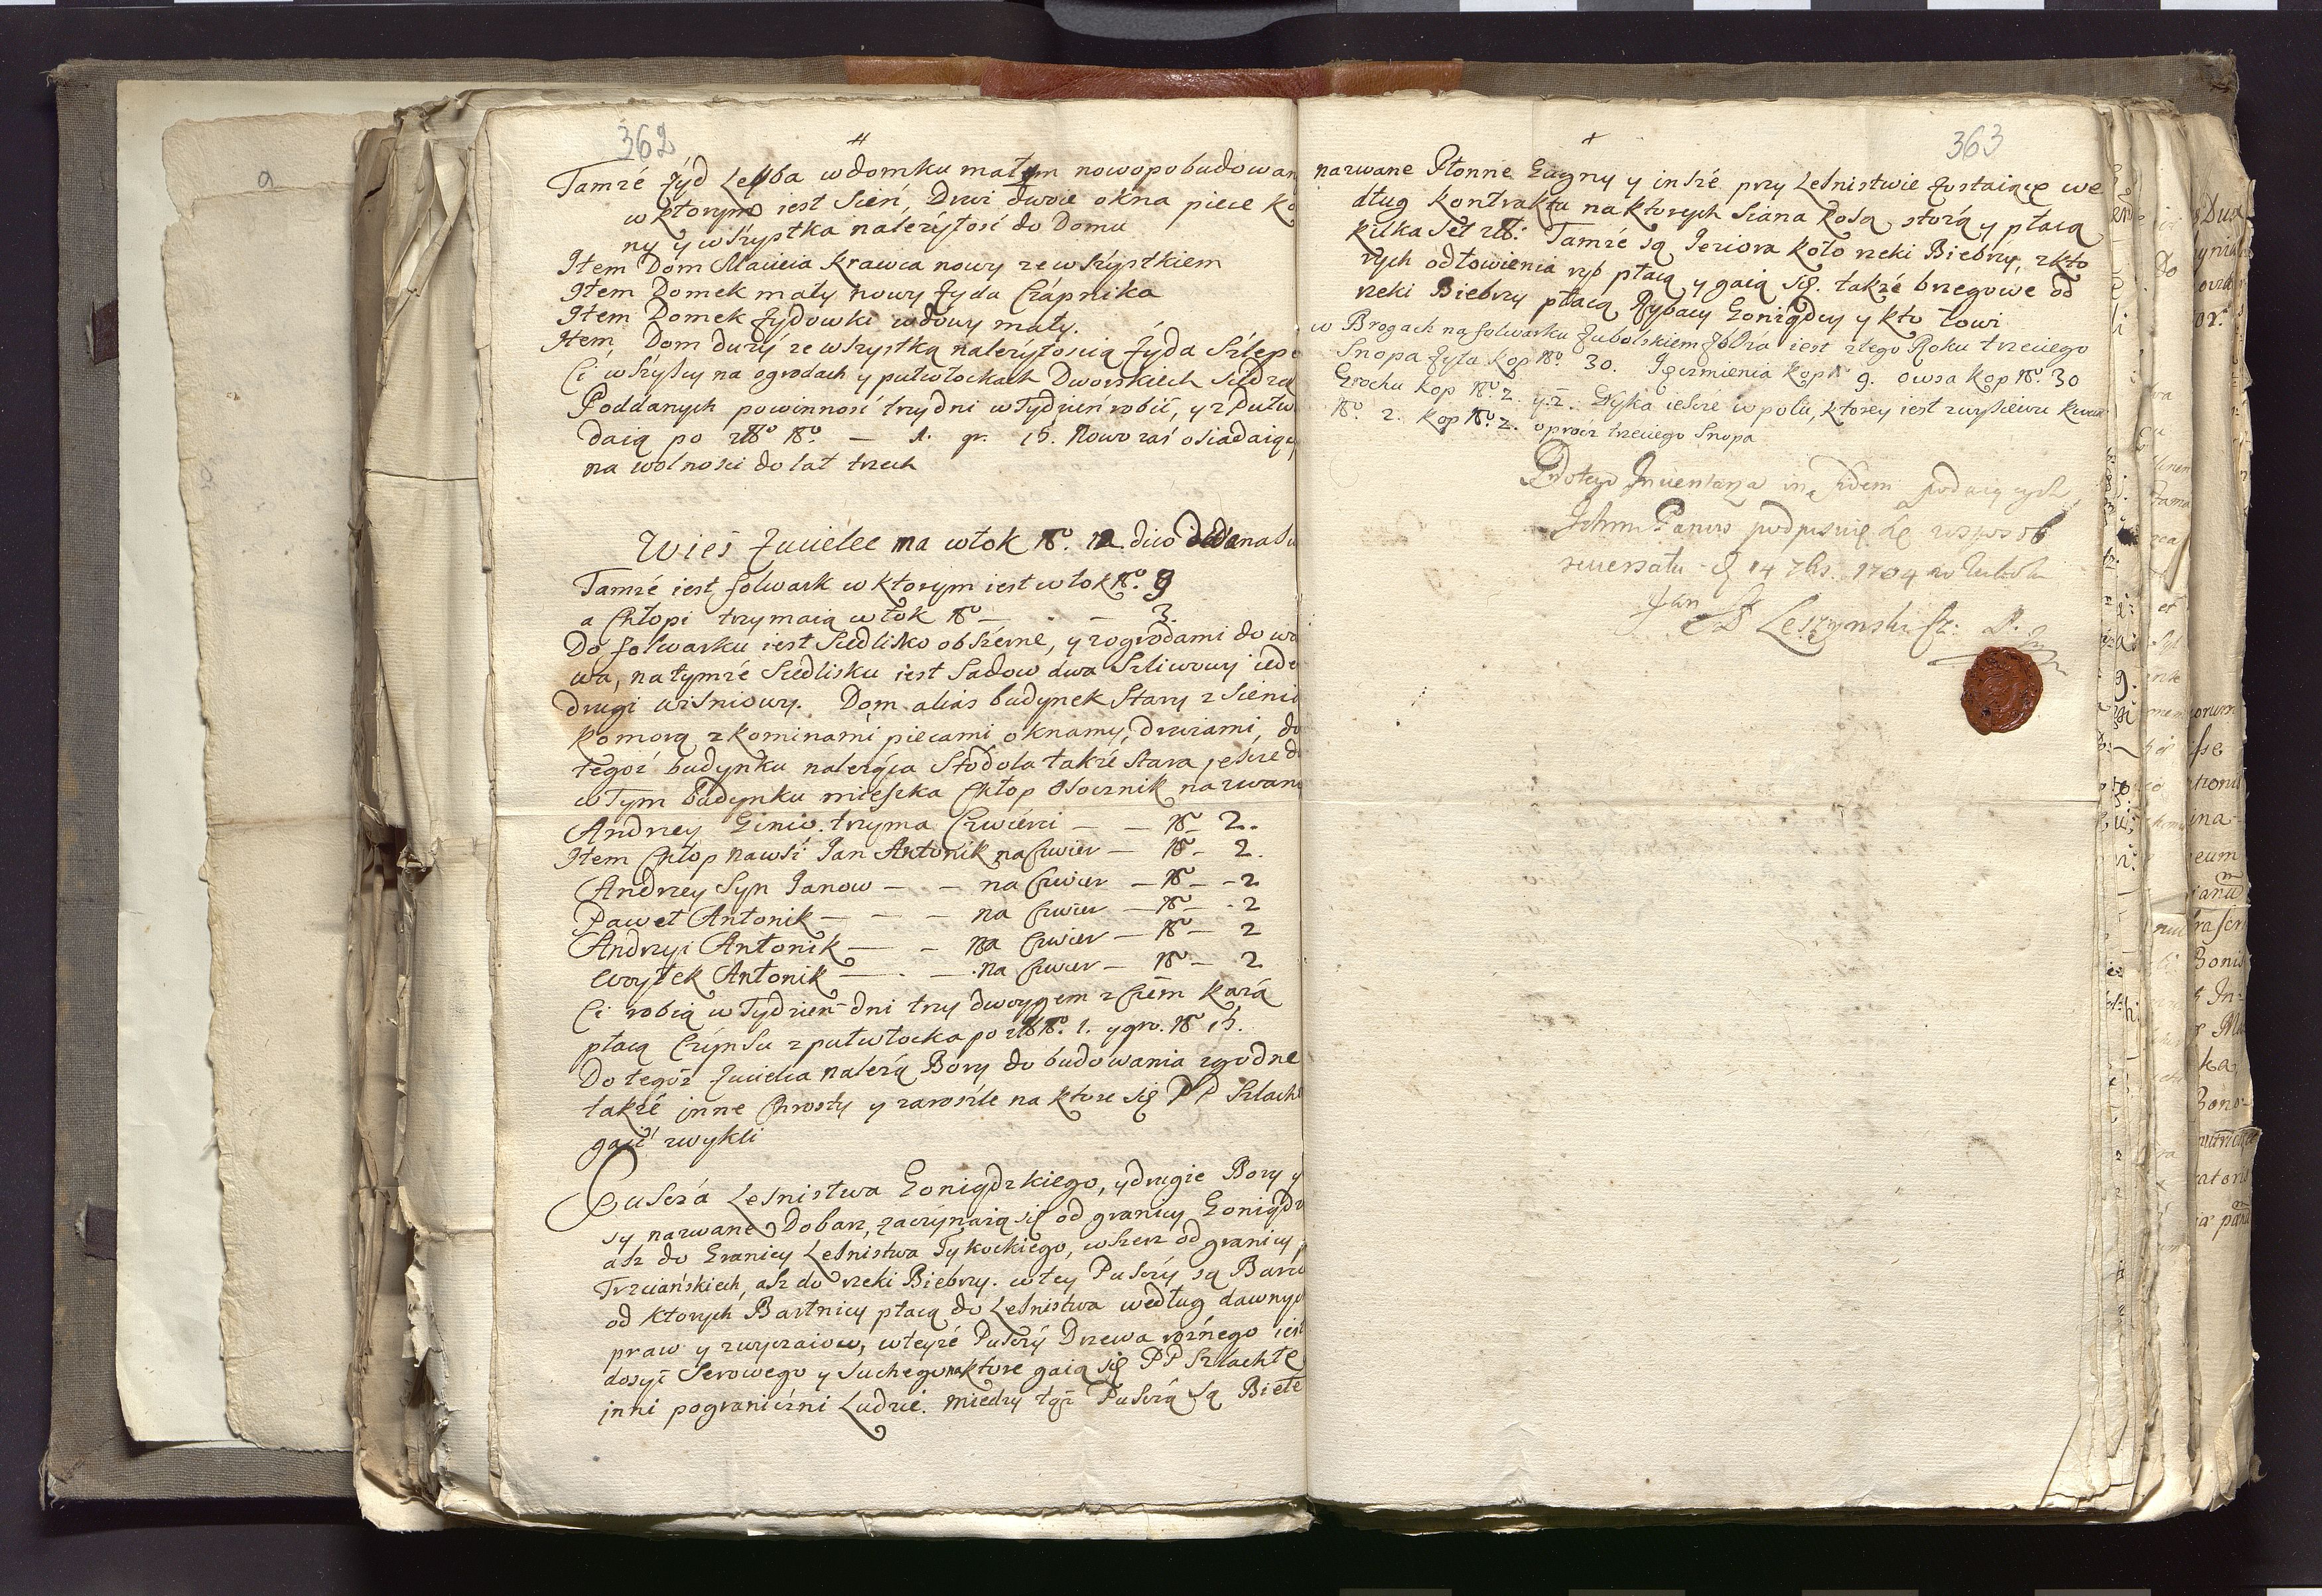 362
Tamże Żyd Leyba w domku małym nowopobudowan
w ktorym iest Sień, Drzwi dwoie okna piece ko
ny y wszystka należytość do Domu
Item Dom Macieia Krawca nowy ze wszystkiem
Item Domek mały nowy Żyda Czapnika
Item Domek Żydowki wdowy mały.
Item Dom duży ze wszystką należytoscią Żyda Szlepe
Ci wszyscy na ogrodach y pułwłockach Dworskiech siedzą
Poddanych powinność trzy dni w Tydzień robić, y z Pułw
daią po zł No. — 1. gr. 15. Nowo zaś osiadaiący
na wolnosci do lat trzech
Wieś Zucielec ma włok No. 12 dwodzanaści
Tamże iest folwark w ktorym iest włok No. 9
a Chłopi trzymaią włok No — . — 3.
Do folwarku iest Siedlisko obszerne, y z ogrodami do wo
wa, na tymże Siedlisku iest Sadow dwa Szliwowy ied
drugi wiśniowy. Dom alias budynek Stary z Sieni
Komorą z kominami piecami oknamy, drzwiami, do
tegoż budynku należąca Stodoła także Stara, jeszcze d
w Tym budynku mieszka Chłop Osocznik nazwan
Andrzey Giniw. trzyma Czwierci — — No 2.
Item Chłop na wsi Jan Antonik na Czwier — No — 2.
Andrzey Syn Janow — — na Czwier — No — - 2
Paweł Antonik — — — na Czwier — No — - 2
Andrzyi Antonik — — na Czwier — No — 2
Woytek Antonik — . — na Czwier — No — 2
Ci robią w Tydzień dni trzy dwoygem z Czem każą
płacą Czynszu z pułwłocka po zł No. 1. y gro. No 15.
Do tegoż Zucielca należą Bory do budowania zgodne
także jnne Chrosty y zarosłe na ktore się PP Szlach
gaić zwykli
Puscza Lesnistwa Goniądzkiego, y drugie Bory y
sy nazwane Dobarz, zaczynaią się od granicy Goniądz
asz do Granicy Lesnistwa Tykockiego, wszerz od granicy
Trzciańskiech, asz do rzeki Biebrzy. w tey Pusczy są Barci
od ktorych Bartnicy płacą do Lesnistwa według dawnych
praw y zwyczaiow, w teyże Pusczy Drzewa rożnego iest
dosyć Serowego y suchego na ktore gaią się PP Szlachte
jnni pograniczni Ludzie. miedzy tąż Pusczą są Biele
363
nazwane Płonne Gągny y insze przy Lesnistwie zostaiące we
dług kontraktu na ktorych Siana koszą storzą y płacą
kilka Set zł: Tamże są Jeziora koło rzeki Biebrzy, z kto
rych od łowienia ryb płacą y gaią się. także brzegowe od
rzeki Biebrzy płacą Rybacy Goniądzcy y kto łowi
w Brogach na folwarku Zubolskiem Zboża iest z tego Roku trzeciego
Snopa Żyta kop No. 30. Jęczmienia kop No 9. Owsa kop No. 30
Grochu kop No. 2. Gryka ieszcze w polu, ktorey iest zwysiewu
No. 2. kop No. 2. oprocz trzeciego Snopa
Do tego Inwentarza in fidem podaiących
Ichm Panow podpisuię się
14 7bris. 1704
Jan Leszzynski